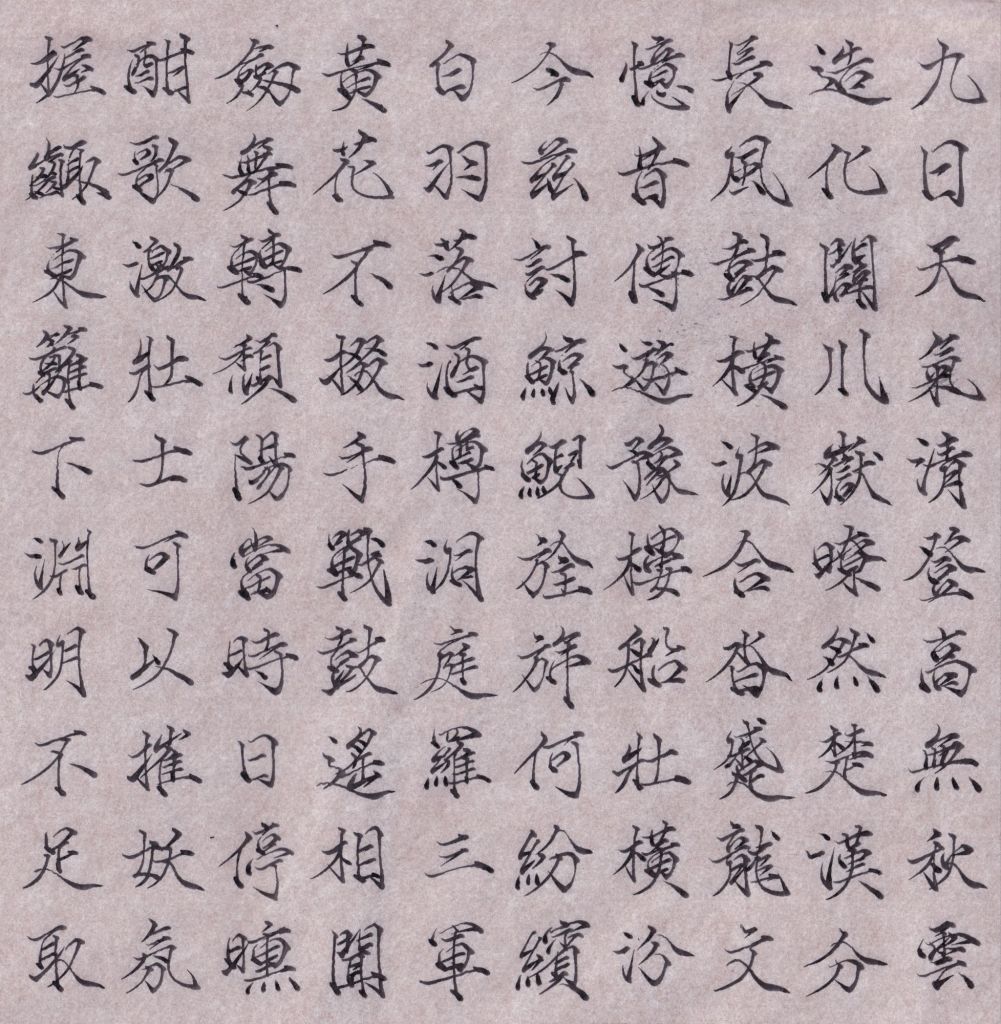 九日天氣清登高無秋雲
造化闢川嶽瞭然楚漢分
長風鼓橫波合沓蹙龍文
憶昔傳遊豫樓船壯橫汾
今茲討鯨鯢旌旆何紛繽
白羽落酒樽洞庭羅三軍
黃花不掇手戰鼓遙相聞
劒舞轉頹陽當時日停曛
酣歌激壯士可以摧妖氛
握齱東籬下淵明不足取